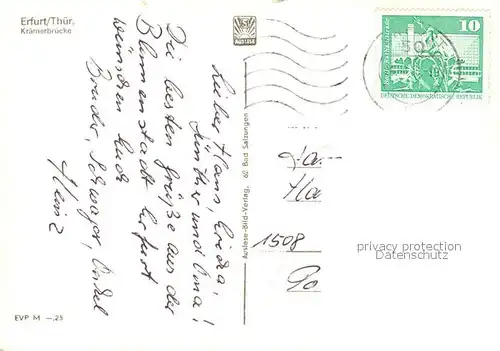 Erfurt/Thür.
Krämerbrücke
Lieber Hans, Frieda,
Günther und Oma!
Die besten Grüße aus der
Blumenstadt Erfurt
wünschen Euch
Bruder, Schwager, Onkel
Heinz
EVP M —,25
Auslese-Bild-Verlag, 62 Bad Salzungen
AUSLESE
10
DEUTSCHE DEMOKRATISCHE REPUBLIK
50
1508
privacy protection
Datenschutz